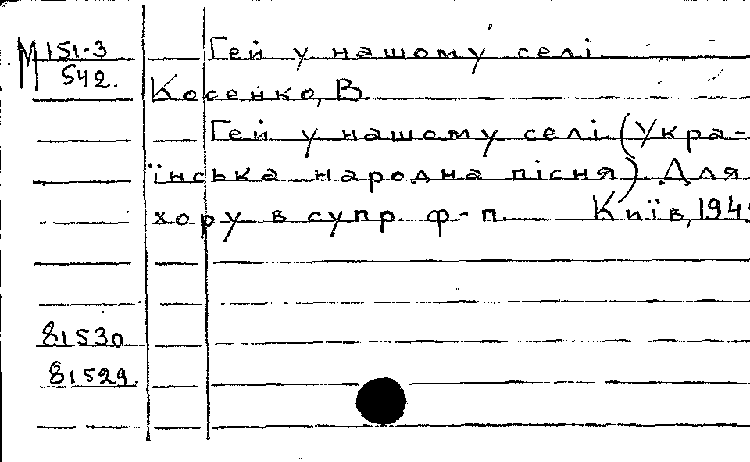 М 151-3 Гей у нашому селі
542.
Косенко, В.
Гей у нашому селі (Укра-
їнська народна пісня) Для
хору в супр. ф-п. Київ,
81530
81529.